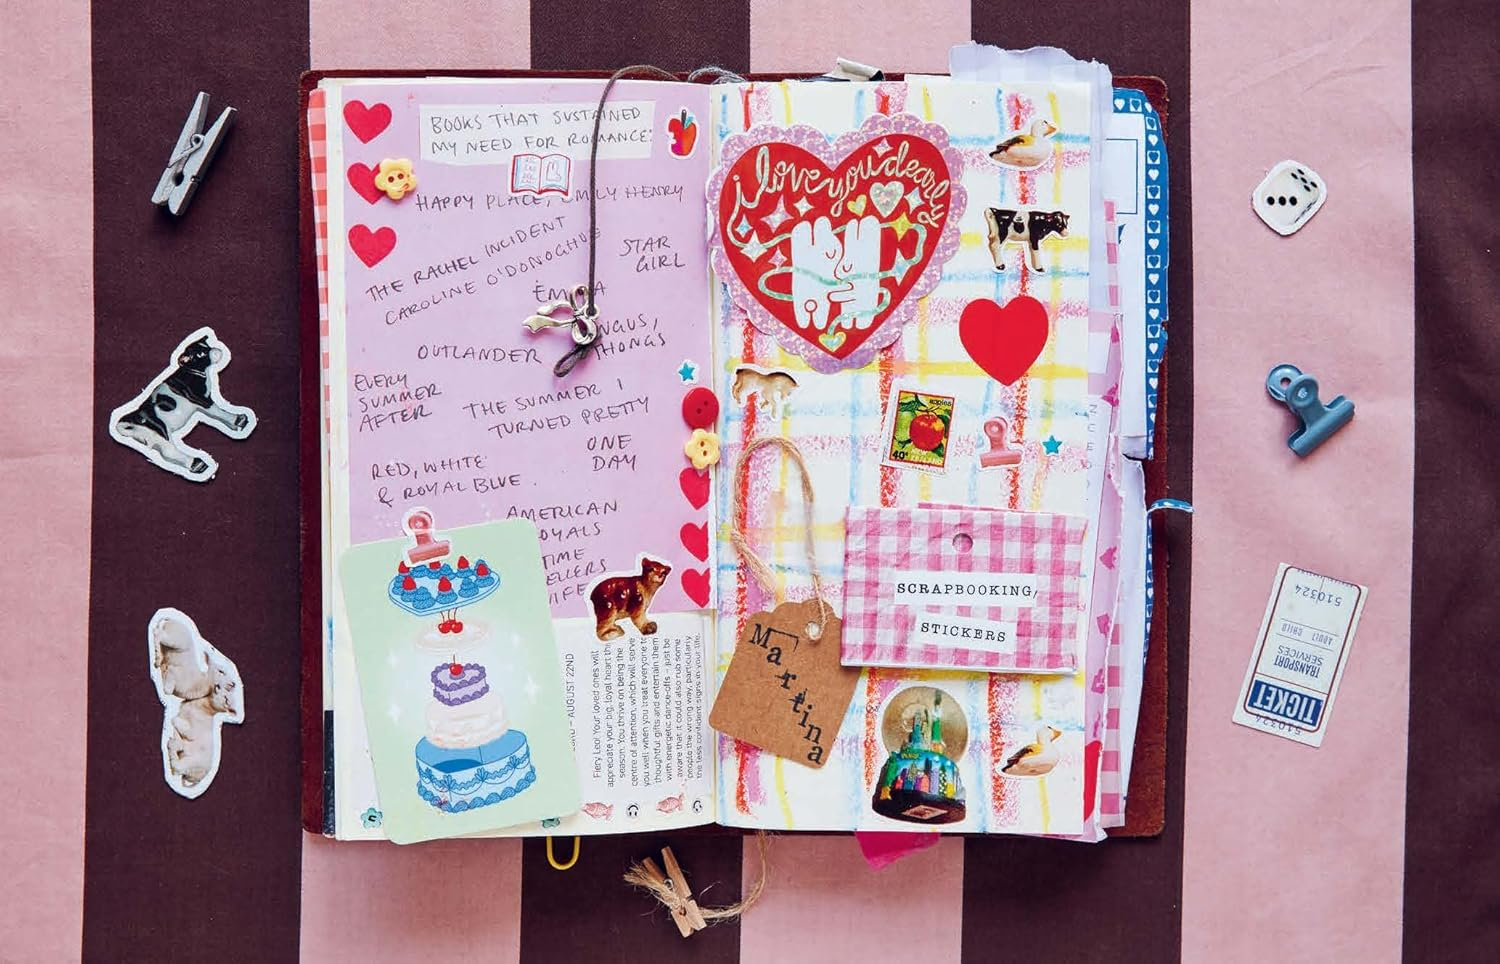 BOOKS THAT SUSTAINED
MY NEED FOR ROMANCE:
HAPPY PLACE, EMILY HENRY
THE RACHEL INCIDENT
CAROLINE O'DONOGHUE
STAR
GIRL
EMMA
THONGS
OUTLANDER
EVERY
SUMMER
AFTER
THE SUMMER I
TURNED PRETTY
ONE
DAY
RED, WHITE
& ROYAL BLUE.
AMERICAN
ROYALS
TIME
– AUGUST 22ND
Fiery Leo! Your loved ones will
appreciate your big, loyal heart this
season. You thrive on being the
centre of attention, which will serve
you well when you treat everyone to
thoughtful gifts and entertain them
with energetic dance-offs – just be
aware that it could also rub some
people the wrong way, particularly
the less confident signs in your life.
i love you dearly
apples
40c
NEW
ZEALAND
SCRAPBOOKING/
STICKERS
Martina
510324
ADULT CHILD
TRANSPORT
SERVICES
TICKET
510324